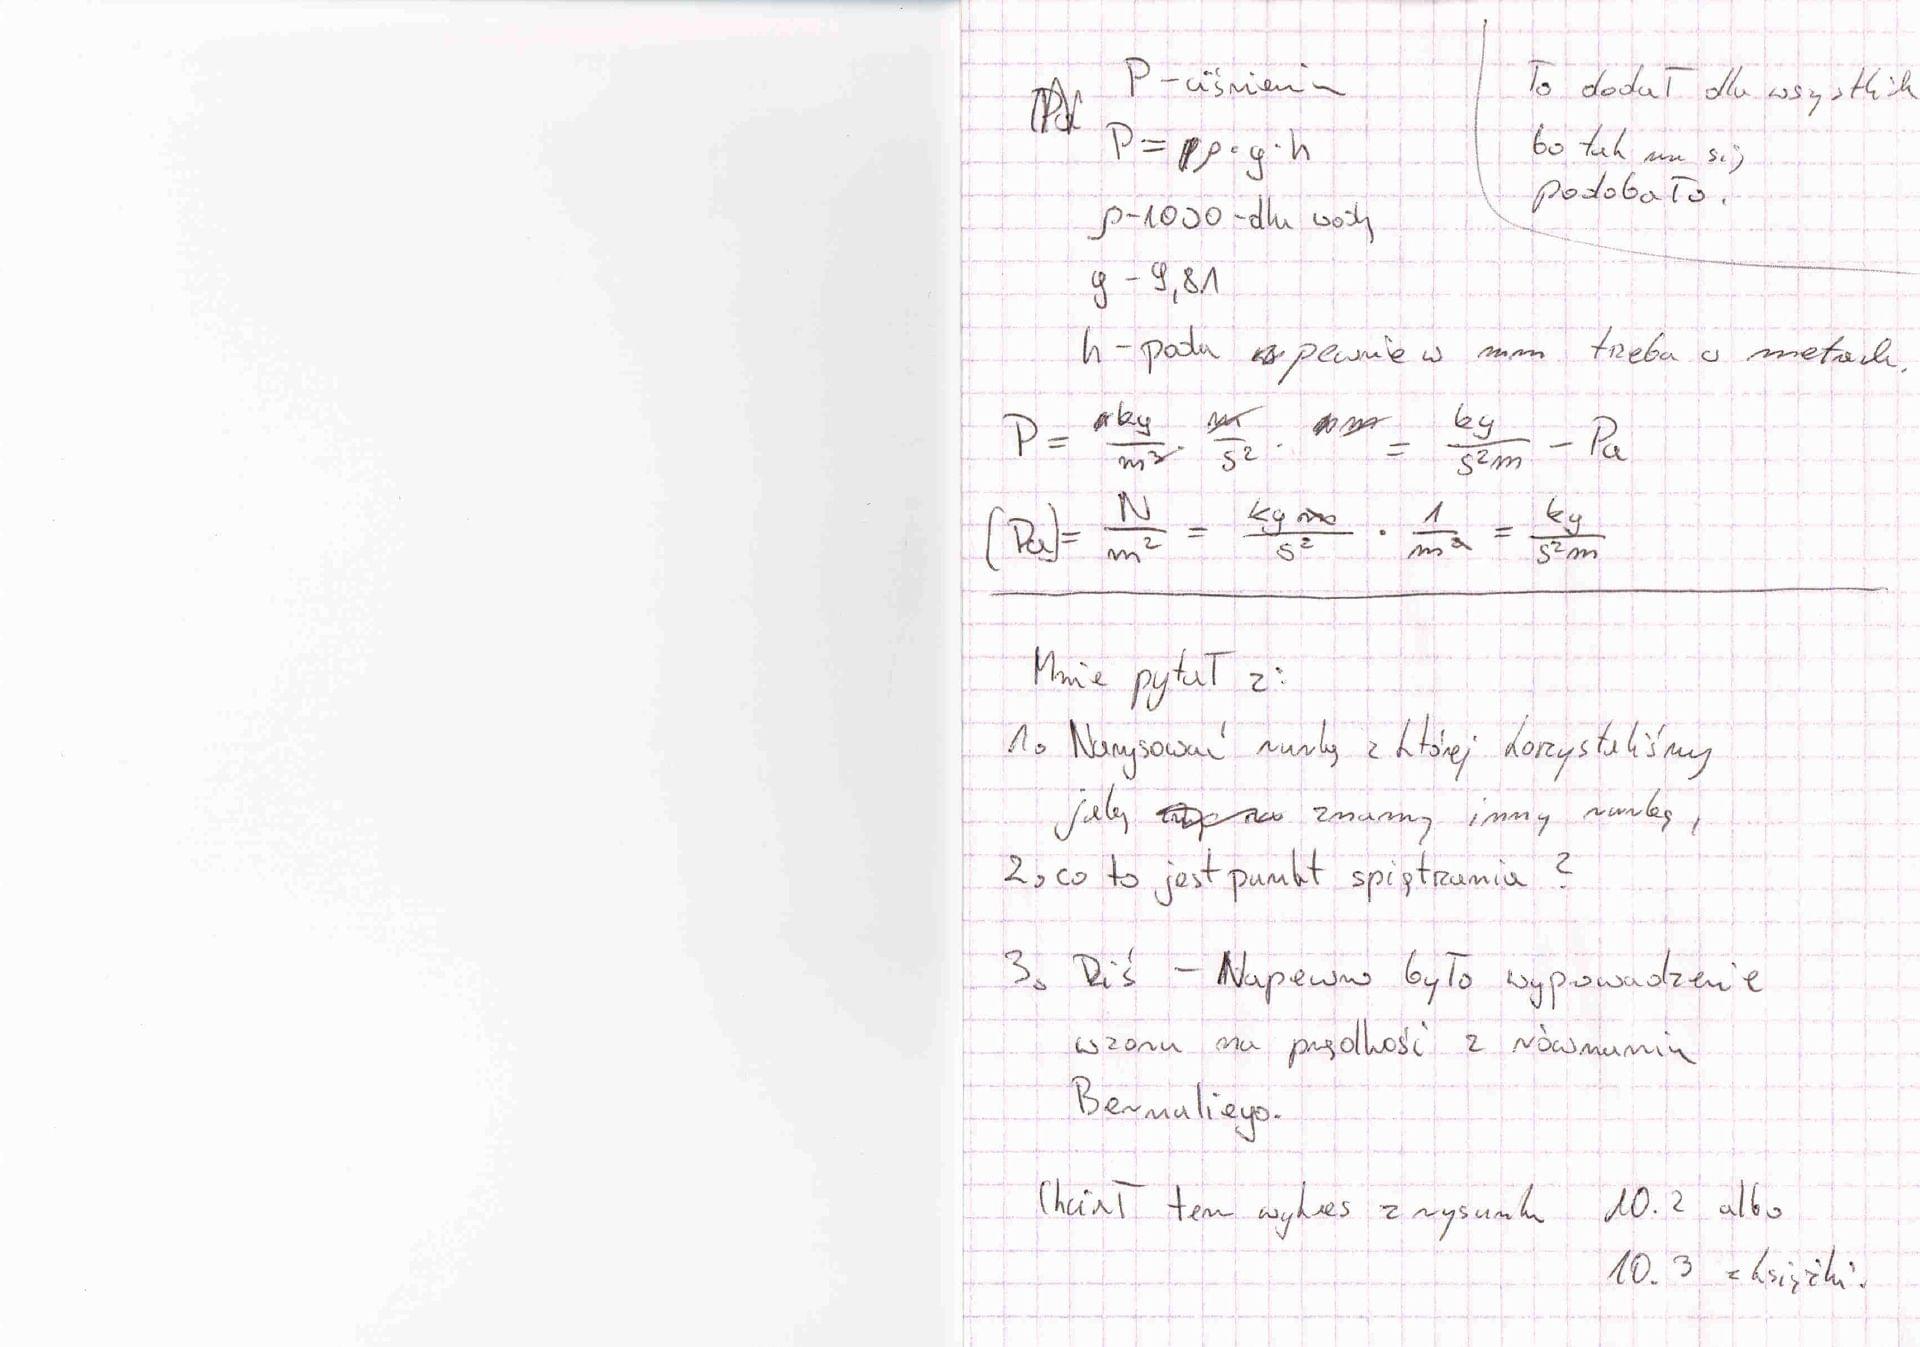 P - ciśnienia
P = ρ · g · h
ρ - 1000 - dla wody
g - 9,81
h - poda pewnie w mm trzeba w metrach.
To dodał dla wszystkich
bo tak mu się
podobało.
P = kg/m³ · m/s² · m = kg/s²m - Pa
[Pa] = N/m² = kg m/s² · 1/m² = kg/s²m
Mnie pytał z:
1. Narysować rurkę z której korzystaliśmy
jaką znamy inną rurkę,
2. co to jest punkt spiętrzania ?
3. Dziś - Napewno było wyprowadzenie
wzoru na prędkość z równania
Bernuliego.
Chciał ten wykres z rysunku 10.2 albo
10.3 z książki.